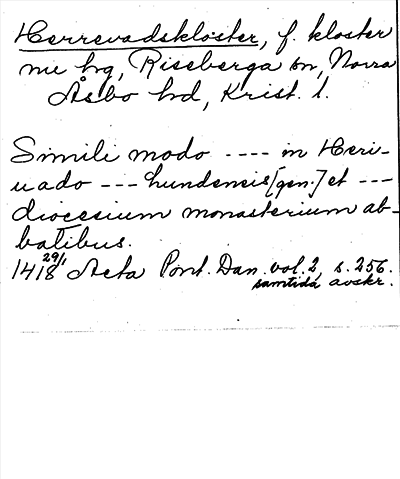 Herrevadskloster, f. kloster
nu hg, Riseberga sn, Norra
Åsbo hd, Krist. l.
Simili modo ---- in Heri-
uado --- hundensis [gen.] et ---
diocesium monasterium ab-
batibus.
1418 29/1 Acta Pont. Dan. vol. 2, s. 256.
samtida avskr.